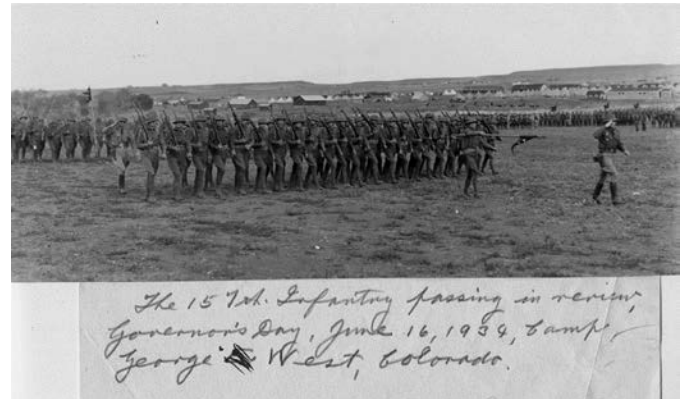 The 157th. Infantry passing in review,
Governor's Day, June 16, 1934, Camp
George West, Colorado.